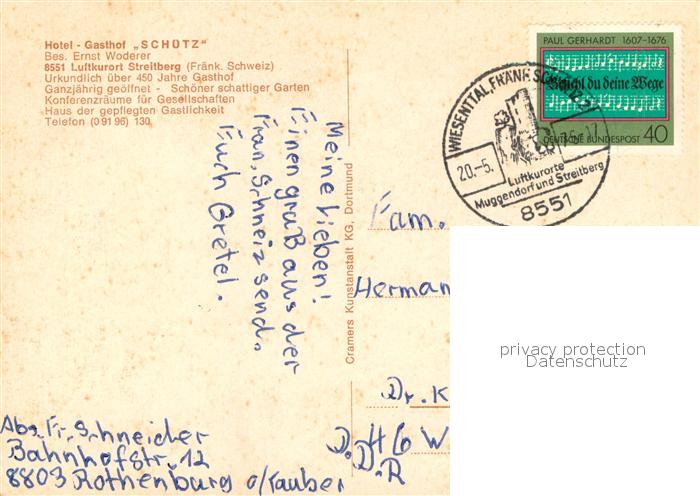 Hotel - Gasthof „SCHÜTZ"
Bes. Ernst Woderer
8551 Luftkurort Streitberg (Fränk. Schweiz)
Urkundlich über 450 Jahre Gasthof
Ganzjährig geöffnet - Schöner schattiger Garten
Konferenzräume für Gesellschaften
Haus der gepflegten Gastlichkeit
Telefon (0 91 96) 130
Meine Lieben!
Einen gruß aus der
Fran. Schweiz send.
Euch Gretel.
Cramers Kunstanstalt KG, Dortmund
PAUL GERHARDT 1607-1676
Befiehl du deine Wege
DEUTSCHE BUNDESPOST 40
WIESENTTAL, FRÄNK. SCHWEIZ
20.-5.
Luftkurorte
Muggendorf und Streitberg
8551
Fam.
Herman
Dr. K
D.D.R
Abs. Fr. Schneider
Bahnhofstr. 12
8803 Rothenburg o/Tauber
privacy protection
Datenschutz